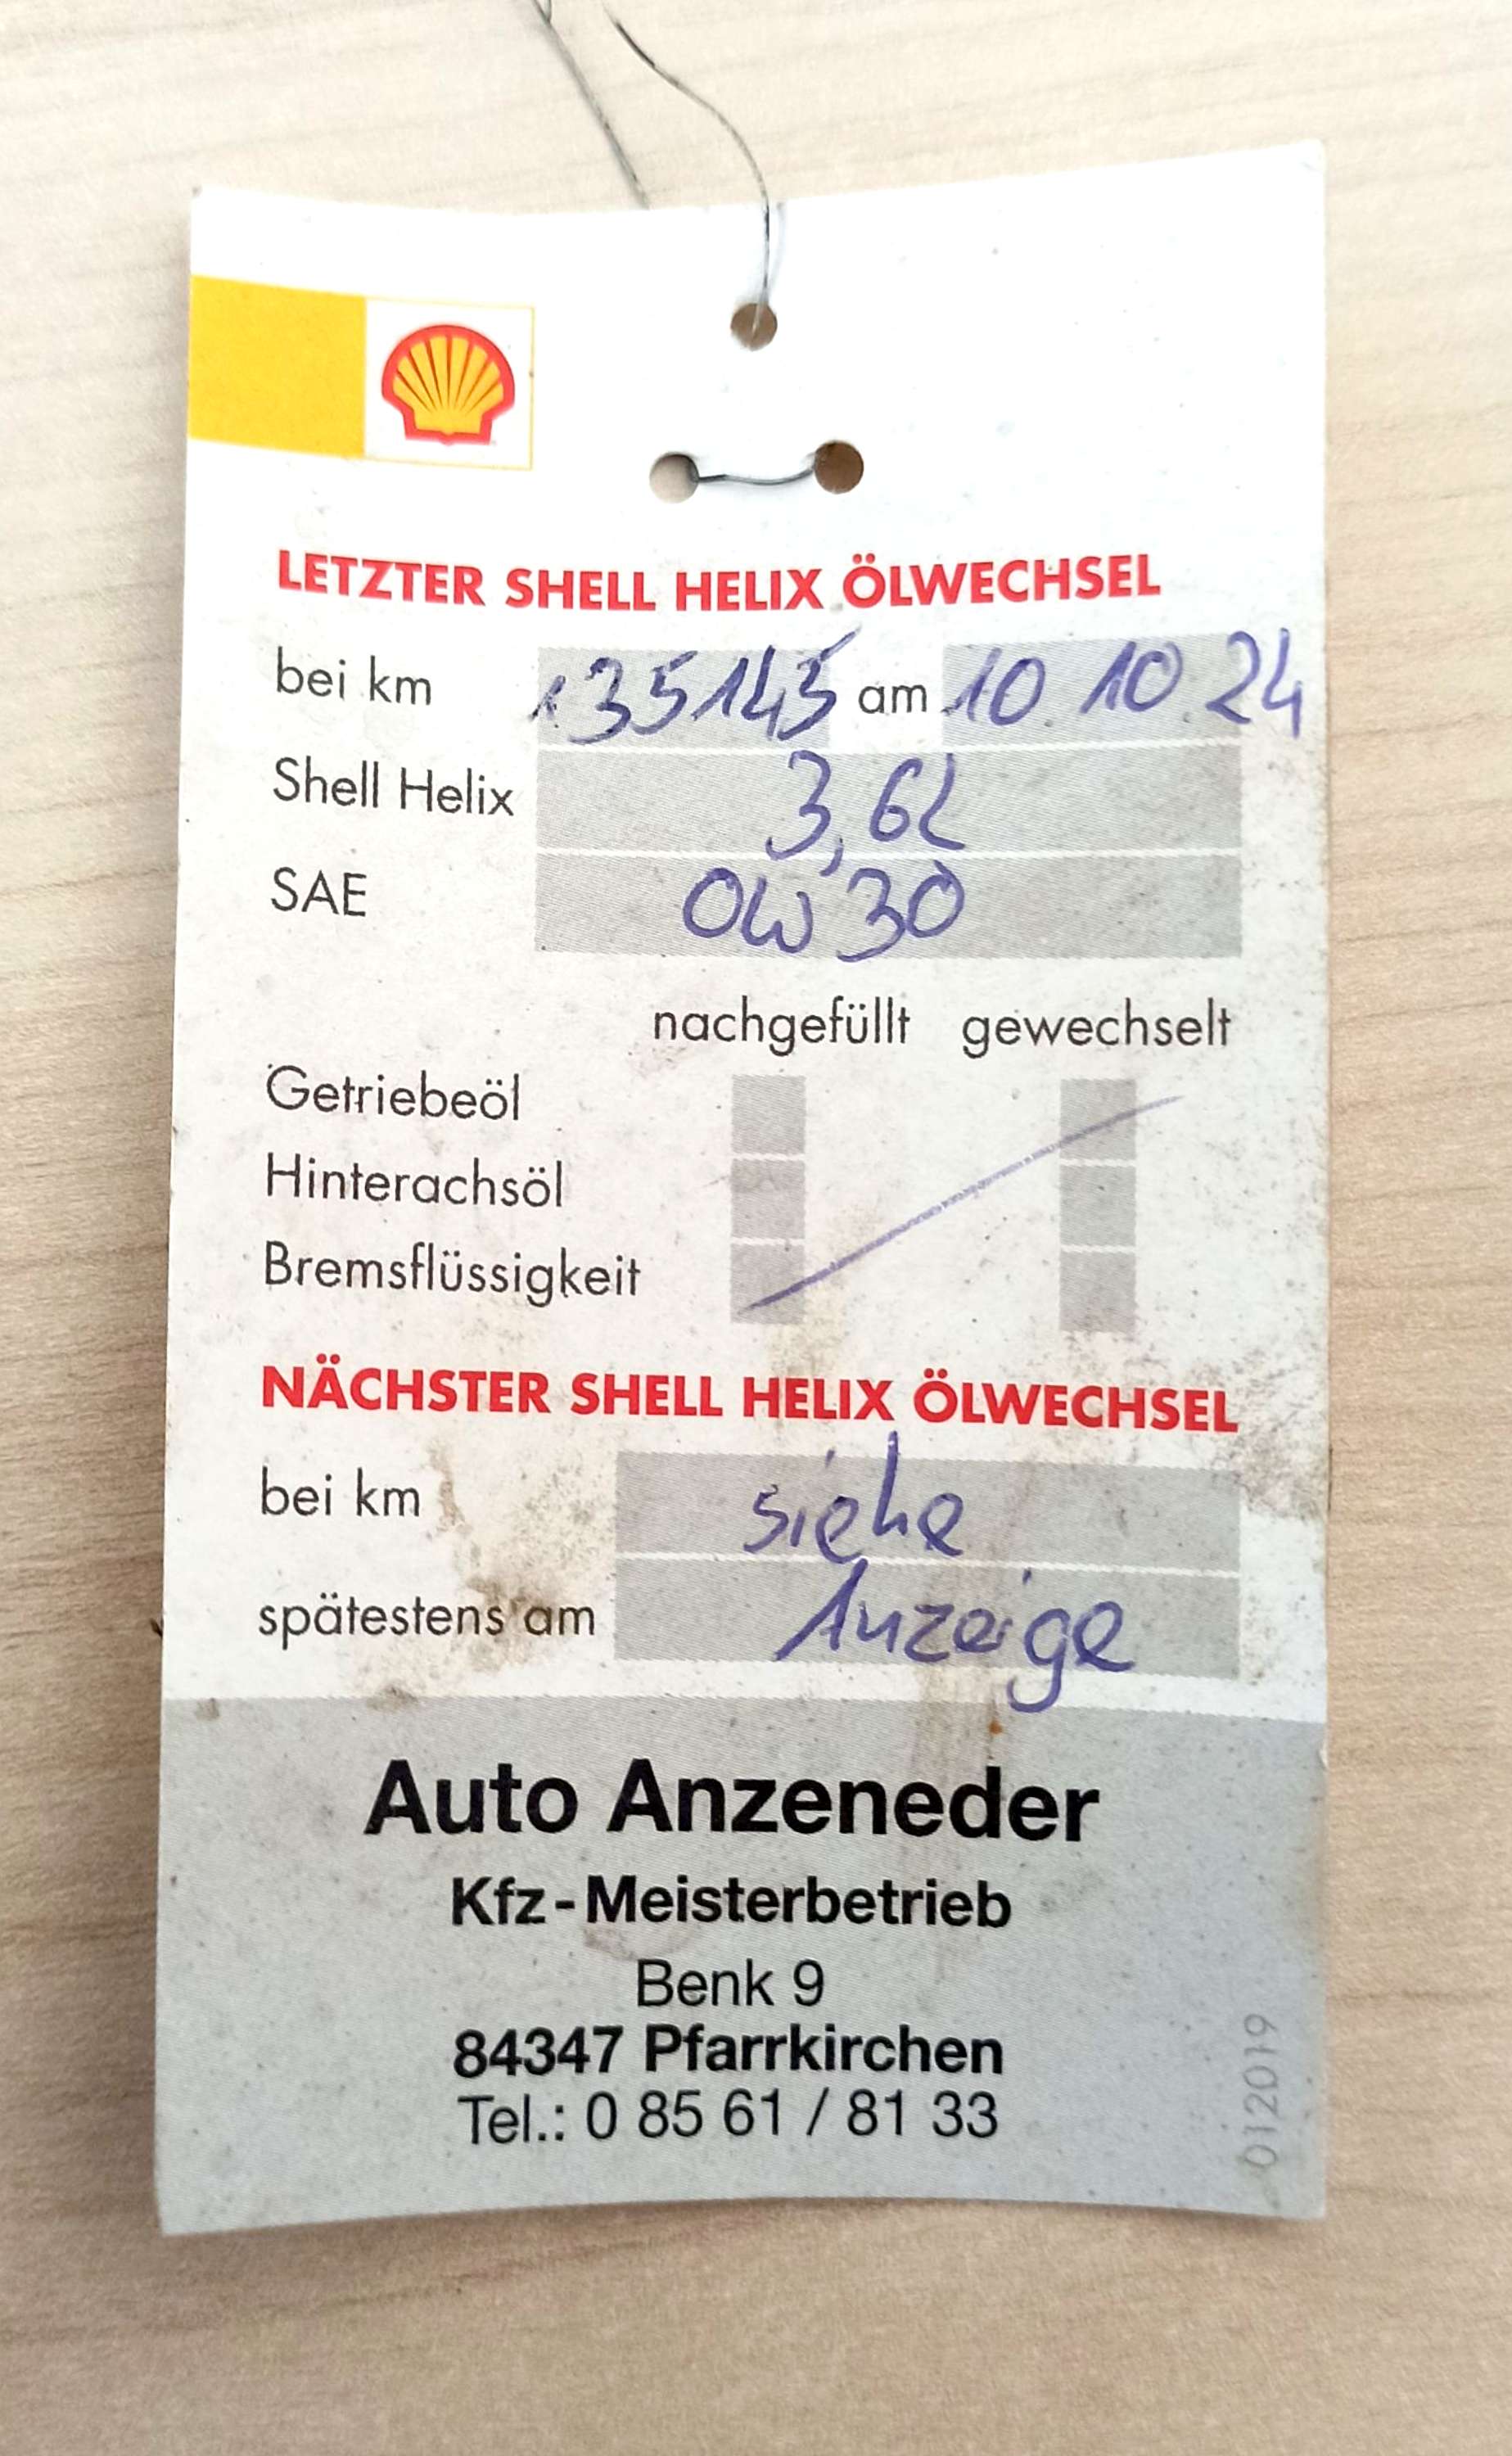 LETZTER SHELL HELIX ÖLWECHSEL
bei km 135145 am 10.10.24
Shell Helix 3,6l
SAE 0W30
nachgefüllt gewechselt
Getriebeöl
Hinterachsöl
Bremsflüssigkeit
NÄCHSTER SHELL HELIX ÖLWECHSEL
bei km siehe
spätestens am Anzeige
Auto Anzeneder
Kfz-Meisterbetrieb
Benk 9
84347 Pfarrkirchen
Tel.: 0 85 61 / 81 33
012019